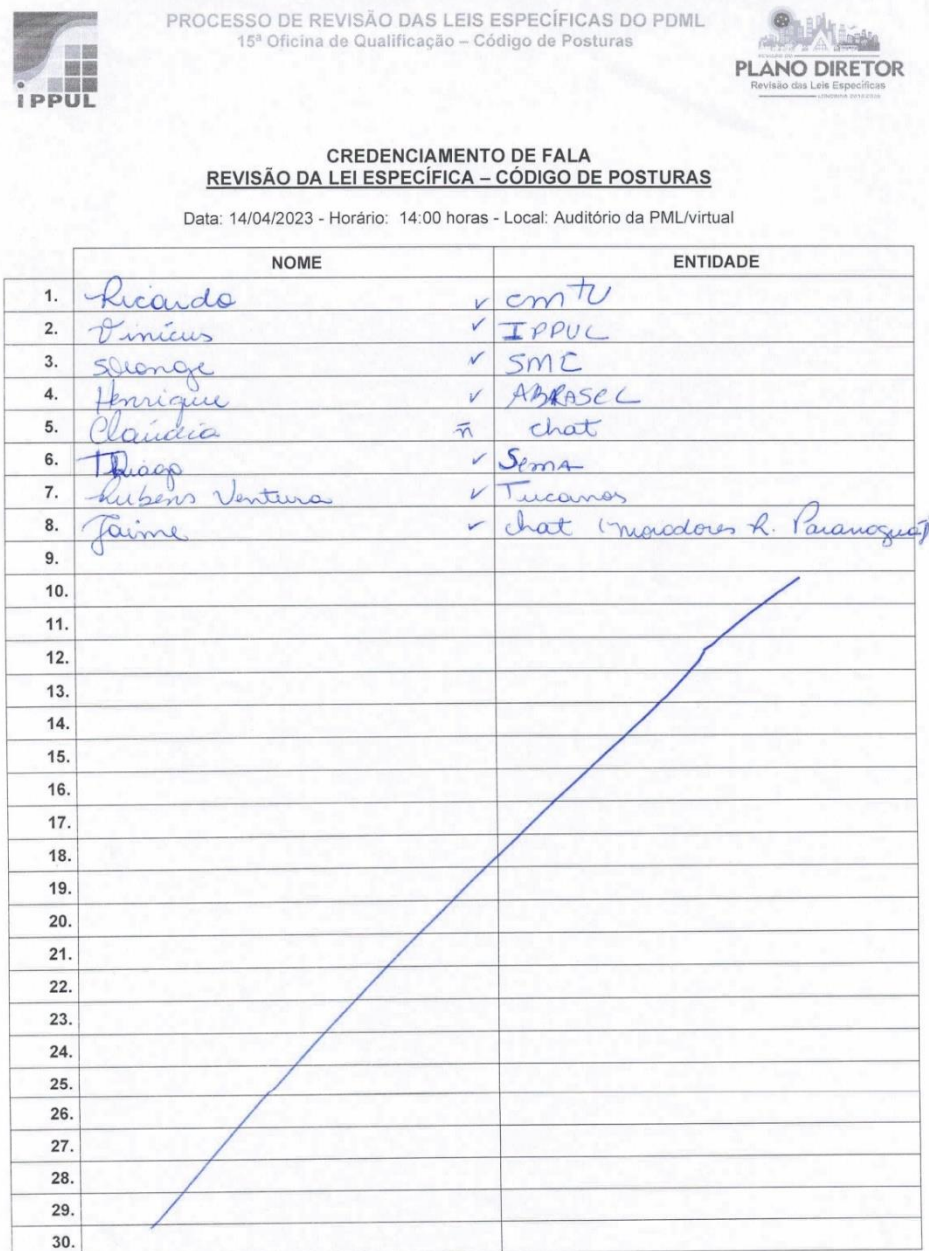 PROCESSO DE REVISÃO DAS LEIS ESPECÍFICAS DO PDML
15ª Oficina de Qualificação – Código de Posturas
iPPUL
PLANO DIRETOR
Revisão das Leis Específicas
CREDENCIAMENTO DE FALA
REVISÃO DA LEI ESPECÍFICA – CÓDIGO DE POSTURAS
Data: 14/04/2023 - Horário: 14:00 horas - Local: Auditório da PML/virtual
NOME ENTIDADE
1. Ricardo ✓ cmTU
2. Vinícius ✓ IPPUL
3. Solange ✓ SMC
4. Henrique ✓ ABRASEL
5. Claúdia ñ chat
6. Thiago ✓ Sema
7. Rubens Ventura ✓ Tucanos
8. Jaime ✓ chat (moradores R. Paranaguá)
9.
10.
11.
12.
13.
14.
15.
16.
17.
18.
19.
20.
21.
22.
23.
24.
25.
26.
27.
28.
29.
30.